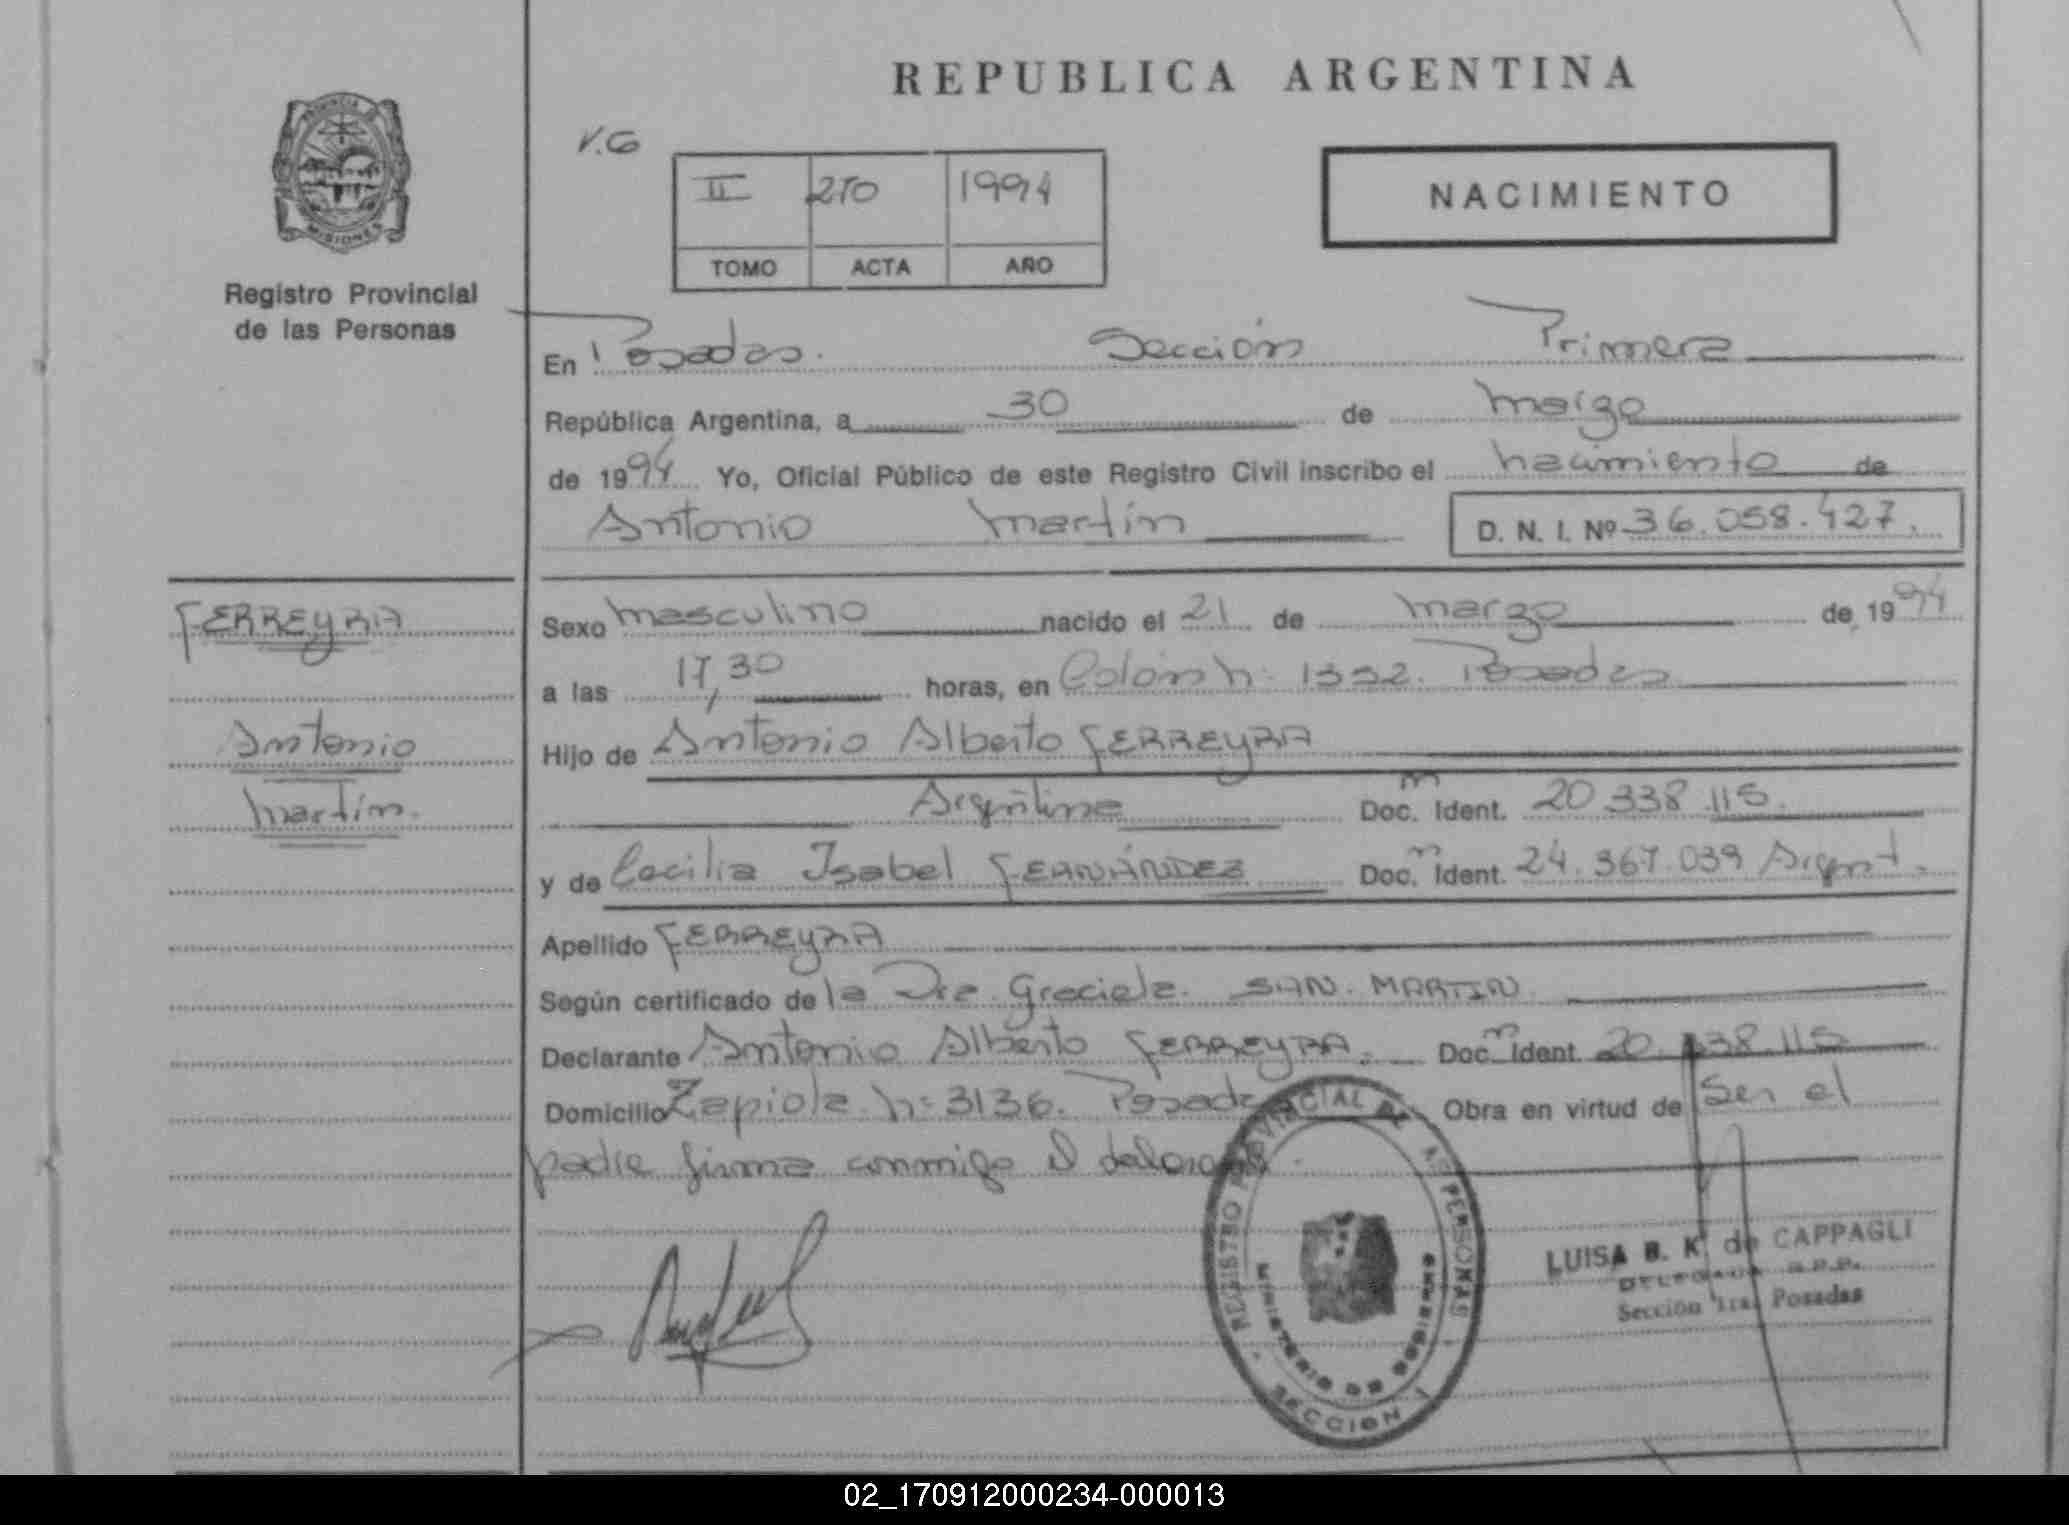 REPUBLICA ARGENTINA
PROVINCIA
MISIONES
Registro Provincial
de las Personas
V.G
II 270 1994
TOMO ACTA AÑO
NACIMIENTO
En Posadas. Sección Primera
República Argentina, a 30 de marzo
de 1994 Yo, Oficial Público de este Registro Civil inscribo el nacimiento de
Antonio Martín D. N. I. Nº 36.058.427.
FERREYRA
Antonio
Martín.
Sexo masculino nacido el 21 de marzo de 1994
a las 17,30 horas, en Colón nº 1352. Posadas
Hijo de Antonio Alberto FERREYRA
Argentina Doc. m Ident. 20.338.115.
y de Cecilia Isabel FERNÁNDEZ Doc. m Ident. 24.367.039 Argent.
Apellido FERREYRA
Según certificado de la Dra. Graciela SAN MARTIN
Declarante Antonio Alberto FERREYRA. Doc. m Ident. 20.338.115
Domicilio Zapiola nº 3136. Posadas Obra en virtud de ser el
padre firma conmigo el declarante.
REGISTRO PROVINCIAL DE LAS PERSONAS
MINISTERIO DE GOBIERNO
SECCION 1
LUISA B. K. de CAPPAGLI
DELEGADA R.P.P.
Sección 1ra. Posadas
02_170912000234-000013